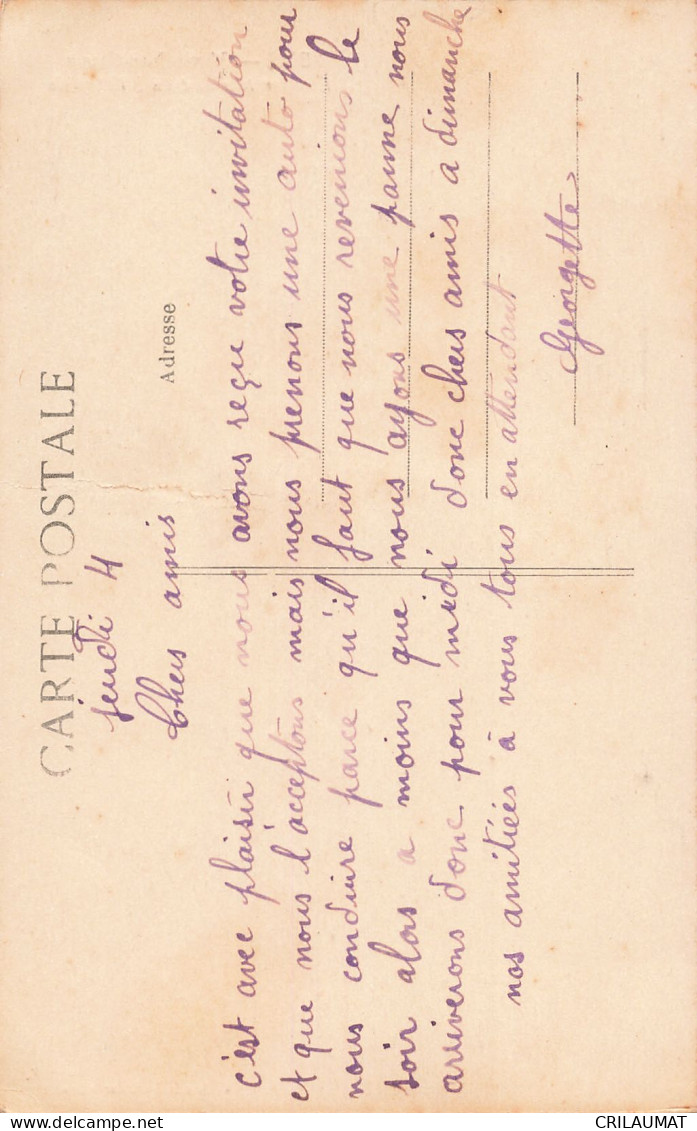 CARTE POSTALE
Adresse
jeudi 4
Chers amis
c'est avec plaisir que nous avons reçu votre invitation
et que nous l'acceptons mais nous prenons une auto pour
nous conduire parce qu'il faut que nous revenions le
soir alors a moins que nous ayons une panne nous
arriverons donc pour midi donc chers amis a dimanche
nos amitiées à vous tous en attendant
Georgette
CRILAUMAT